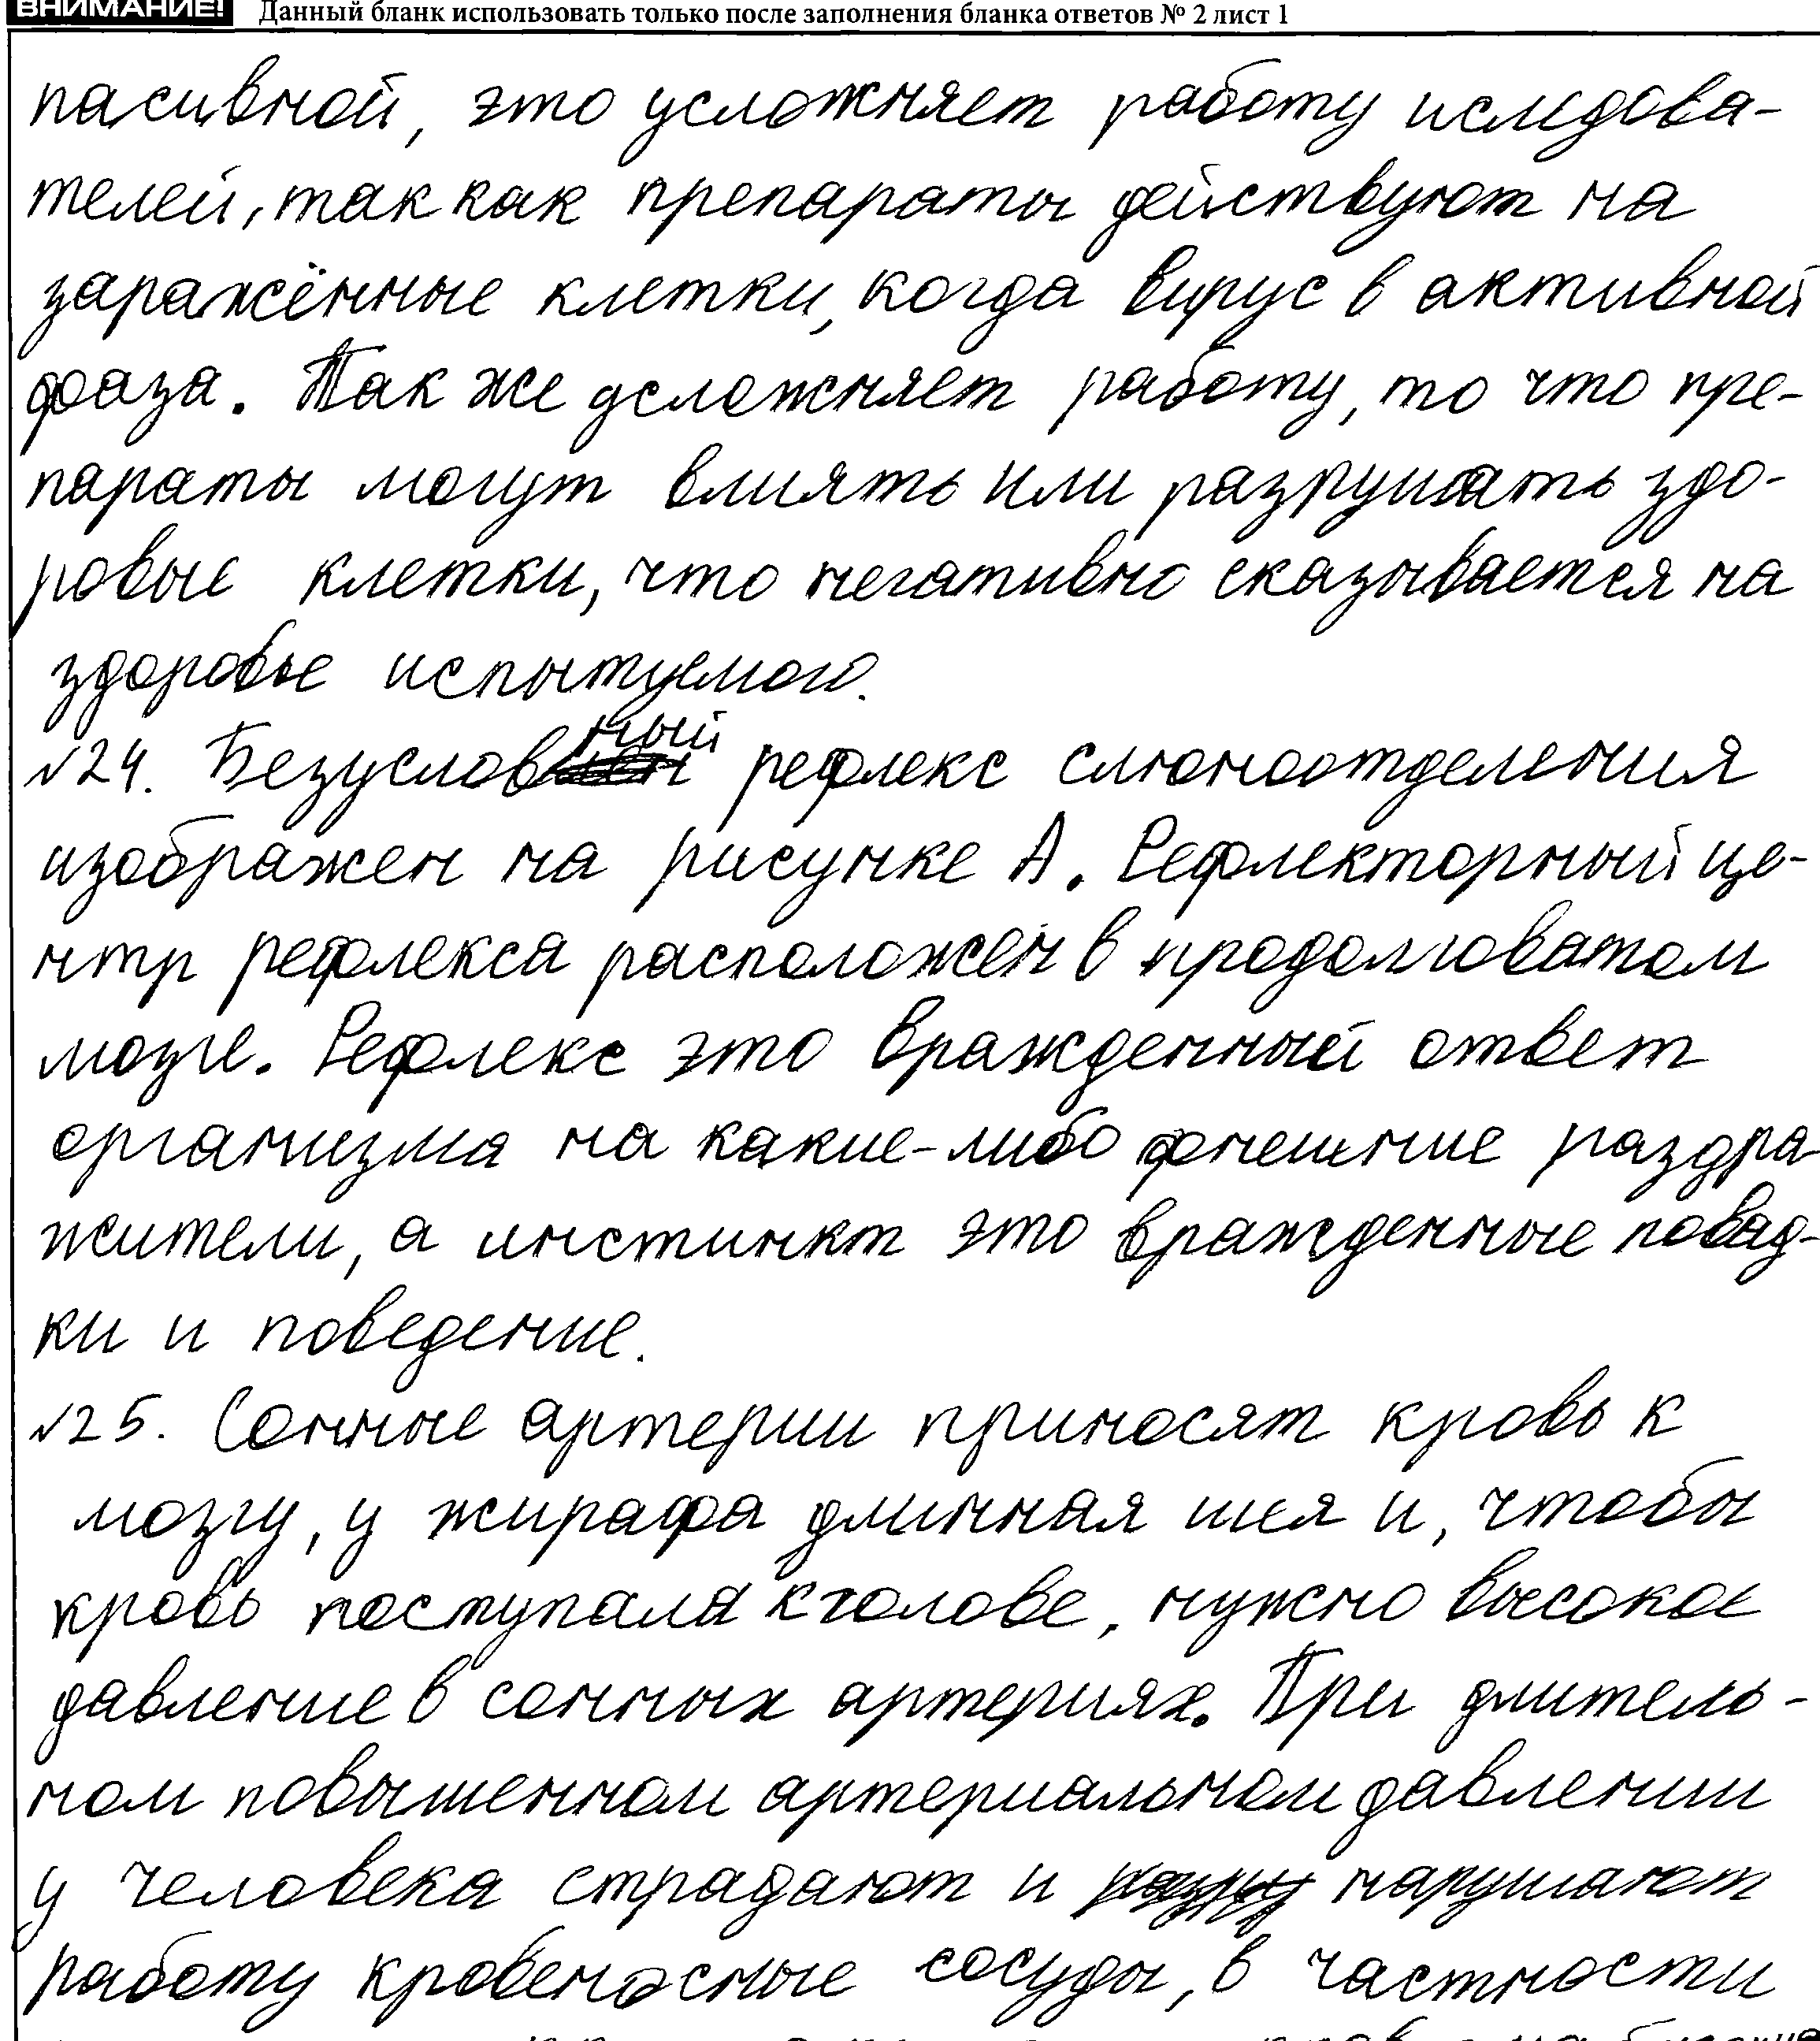 ВНИМАНИЕ! Данный бланк использовать только после заполнения бланка ответов № 2 лист 1
пасивной, это усложняет работу иследова-
телей, так как препараты действуют на
заражённые клетки, когда вирус в активной
фаза. Так же усложняет работу, то что пре-
параты могут влиять или разрушать здо-
ровые клетки, что негативно сказывается на
здоровье испытуемого.
№24. Безусловный рефлекс слюноотделения
изображен на рисунке А. Рефлекторный це-
нтр рефлекса расположен в продолговатом
мозге. Рефлекс это вражденный ответ
организма на какие-либо фнешние раздра-
жители, а инстинкт это вражденные повад-
ки и поведение.
№25. Сонные артерии приносят кровь к
мозгу, у жирафа длинная шея и, чтобы
кровь поступала к голове, нужно высокое
давление в сонных артериях. При длитель-
ном повышенном артериальном давлении
у человека страдают и нарушают
работу кровеносные сосуды, в частности